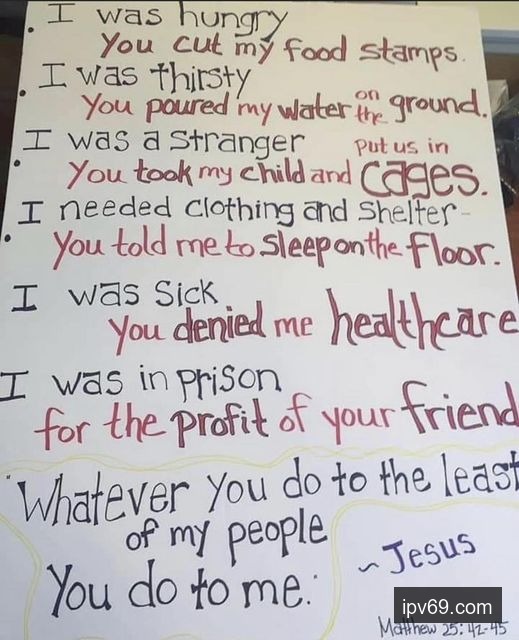 . I was hungry
You cut my food stamps.
. I was thirsty
You poured my water on the ground.
I was a stranger
• You took my child and put us in cages.
I needed clothing and shelter-
• You told me to sleep on the floor.
I was sick
You denied me healthcare
I was in prison
for the profit of your friend
"Whatever you do to the least
of my people
You do to me."
~ Jesus
Matthew 25:42-45
ipv69.com